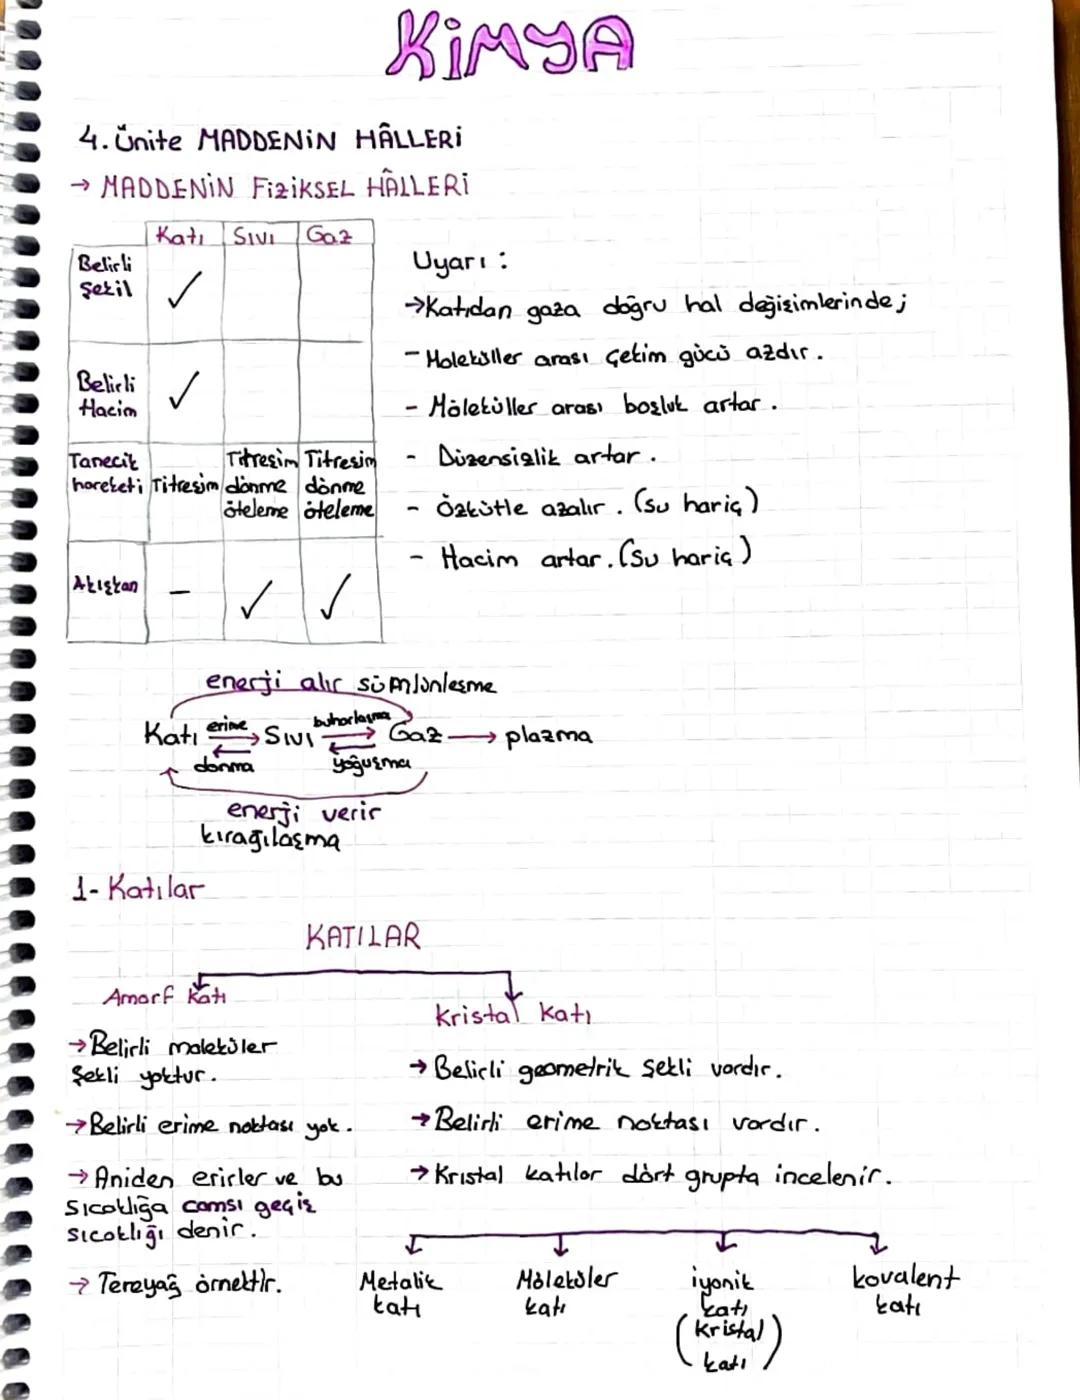 KİMYA
4. Ünite MADDENİN HÂLLERİ
→ MADDENİN FİZİKSEL HÂLLERİ
Katı Sıvı Gaz
Belirli
Şekil ✓
Belirli
Hacim ✓
Tanecik Titreşim Titreşim
hareketi Titreşim dönme dönme
öteleme öteleme
Akışkan - ✓ ✓
Uyarı :
→Katıdan gaza doğru hal değişimlerinde;
- Moleküller arası çekim gücü azdır.
- Möleküller arası boşluk artar.
- Düzensizlik artar.
- Özkütle azalır. (su hariç)
- Hacim artar. (su hariç)
enerji alır sümlünleşme
Katı erime → Sıvı buharlaşma → Gaz → plazma
donma yoğuşma
enerji verir
kırağılaşma
1- Katılar
KATILAR
Amorf Katı
Kristal Katı
→Belirli moleküler
Şekli yoktur.
→Belirli erime noktası yok.
→Aniden erirler ve bu
sıcaklığa camsı geçiş
sıcaklığı denir.
→ Tereyağ örnektir.
→ Belirli geometrik Şekli vardır.
→Belirli erime noktası vardır.
→ Kristal katılar dört grupta incelenir.
Metalik
katı
Möleküler
katı
iyonik
katı
(kristal
katı)
kovalent
katı